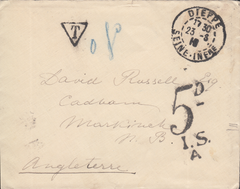 DIEPPE
17 30
23 - 5
SEINE-INFRE
T
David Russell Esq
Cadham
Markinch
N.B.
Angleterre
5D.
I.S.
A